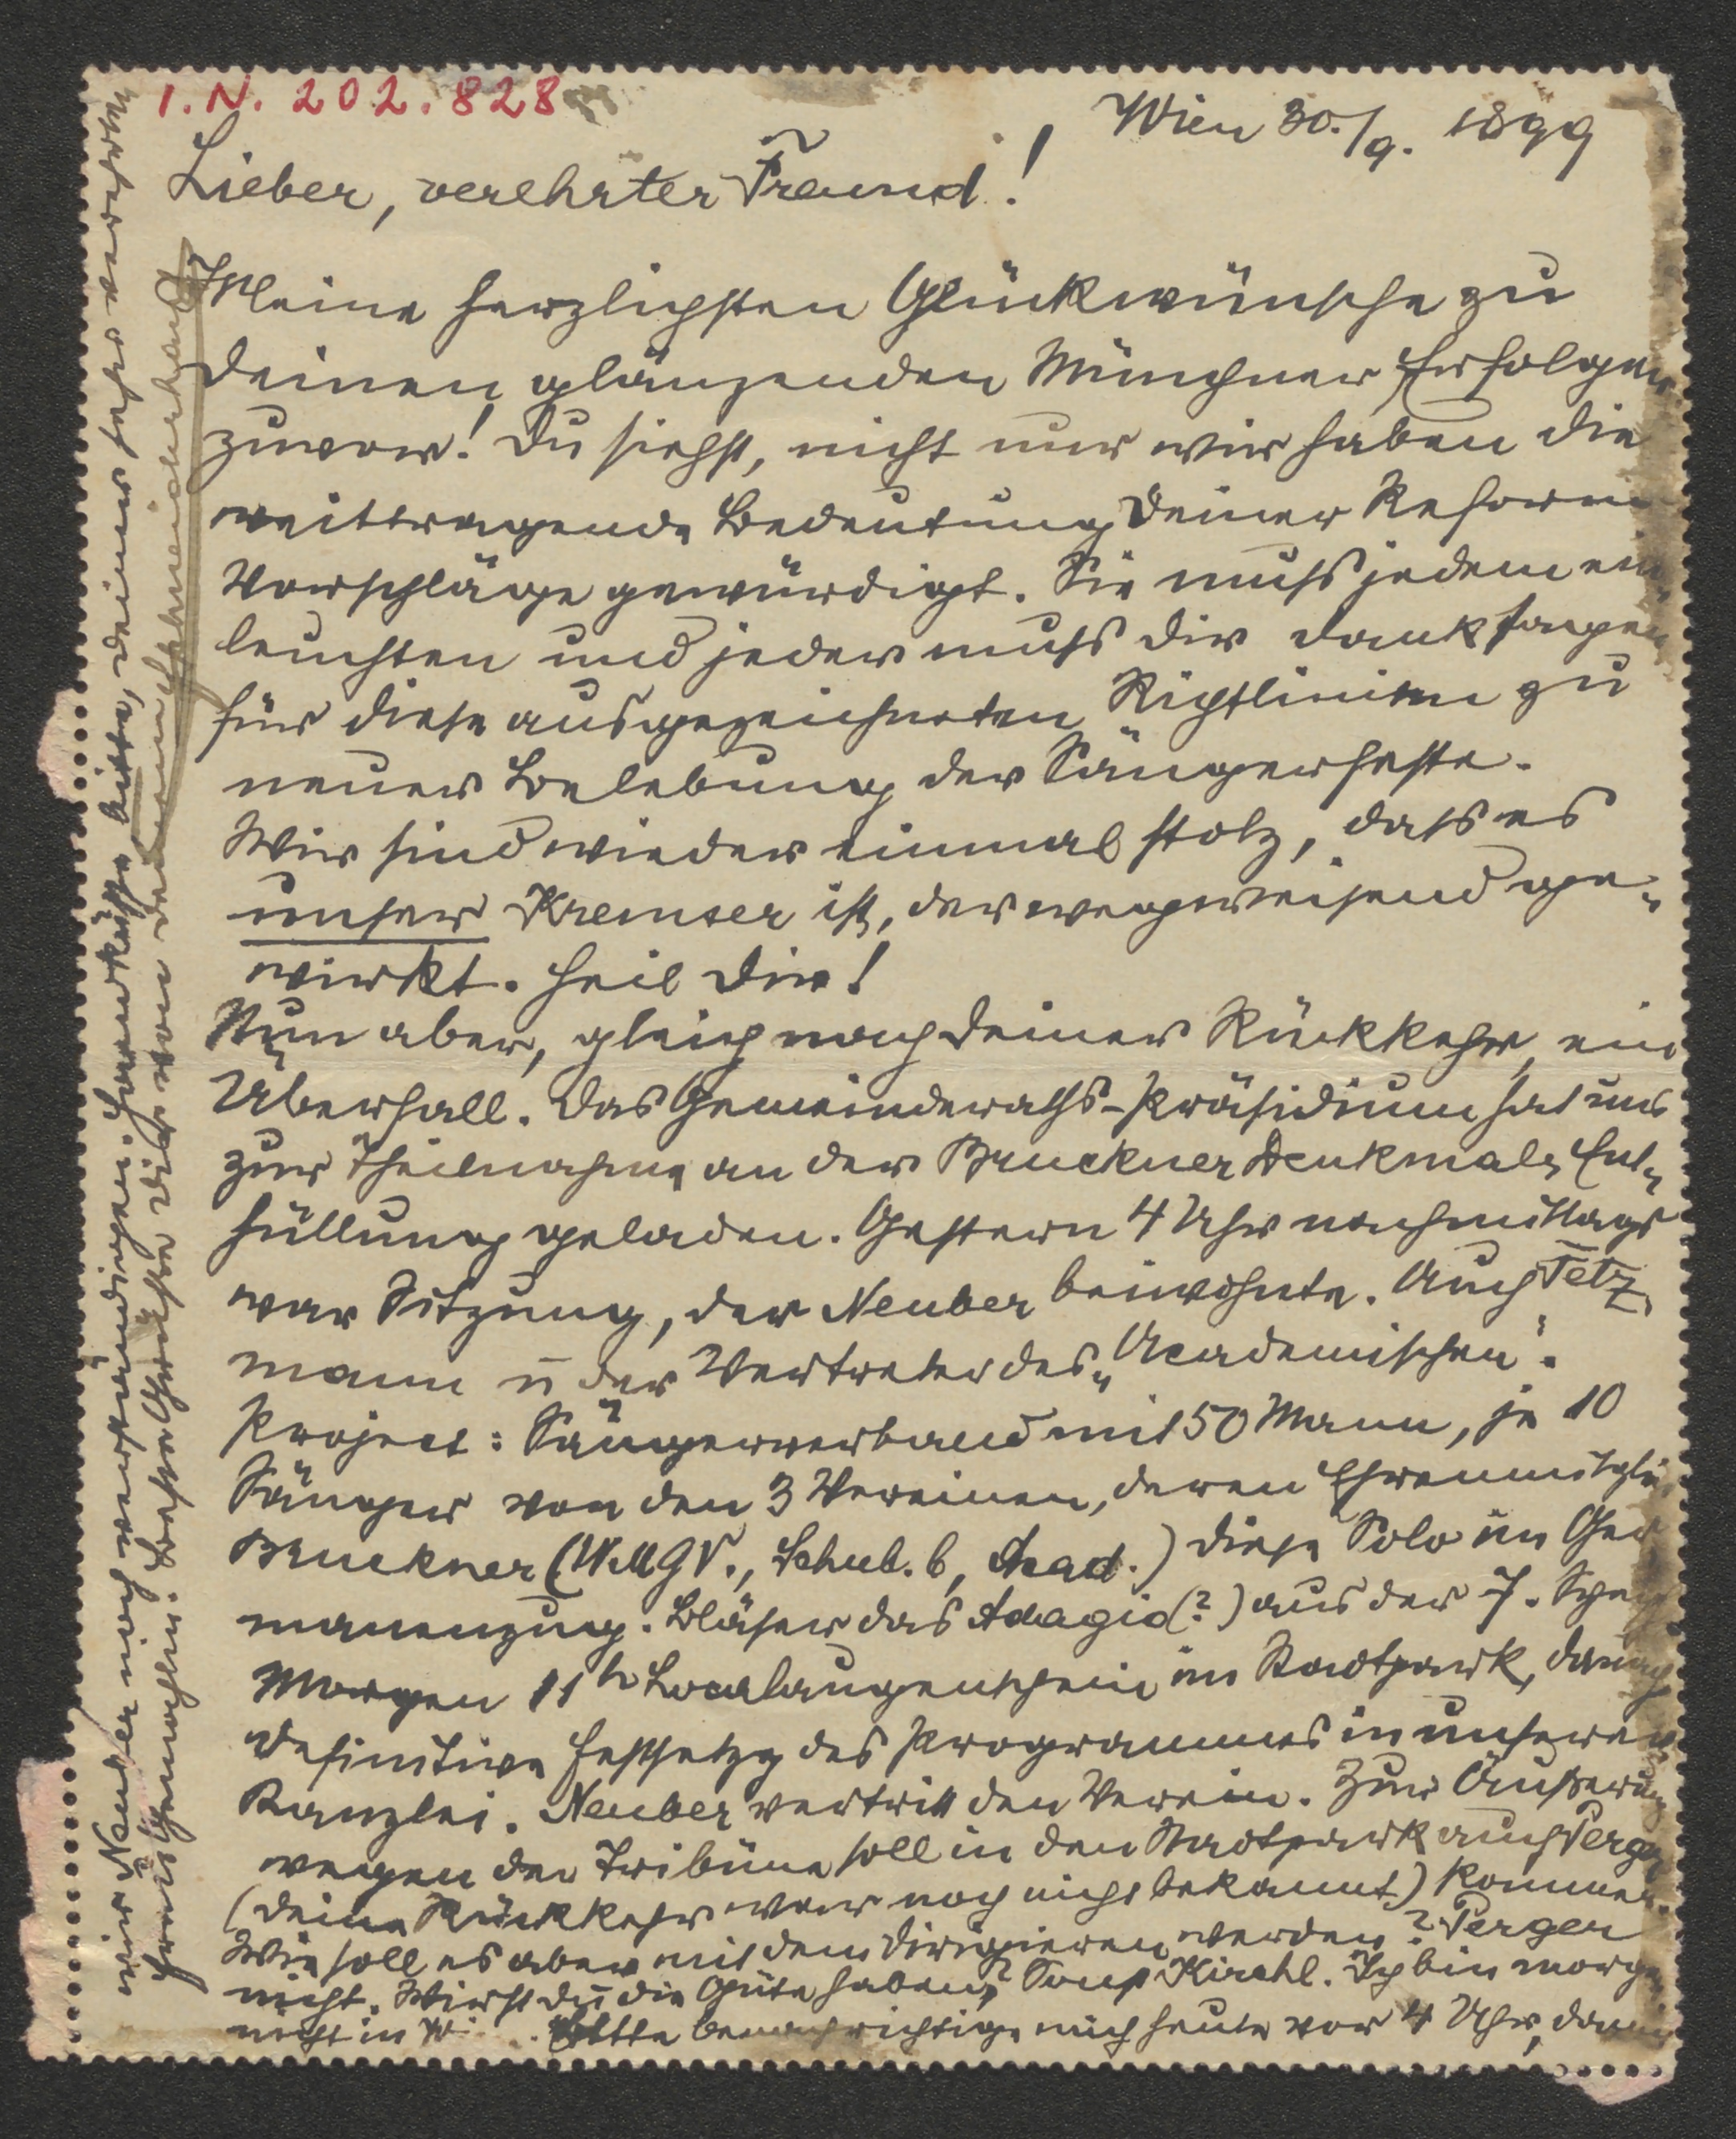 I.N. 202.828
Wien 30./9. 1899
Lieber, verehrter Freund!
Meine herzlichsten Glückwünsche zu
deinen glänzenden Münchner Erfolgen
zuvor! Du siehst, nicht nur wir haben die
weittragende Bedeutung deiner Reform
Vorschläge gewürdigt. Sie muss jedem ein
leuchten und jeder muss dir dank sagen
für diese ausgezeichneten Richtlinien zu
neuer Belebung der Sängerfeste.
Wir sind wieder einmal stolz, dass es
unser Kremser ist, der wegweisend ge-
wirkt. Heil dir!
Nun aber, gleich nach deiner Rückkehr, ein
Überfall. Das Gemeinderaths-Präsidium hat uns
zur Theilnahme an der Bruckner Denkmals Ent-
hüllung geladen. Gestern 4 Uhr nachmittags
war Sitzung, der Neuber beiwohnte. Auch Tetz-
mann u der Vertreter des „Academischen“.
Project: Sängerverband mit 50 Mann, je 10
Sänger von den 3 Vereinen, deren Ehrenmitgli
Bruckner (W.M.G.V., Schub. b, Acad.) diese Solo im Ger
manenzug. Bläser das Adagio (?) aus der 7. Symph
Morgen 11h Localaugenschein im Stadtpark, danach
definitive Festsetzg des Programmes in unserer
Kanzlei. Neuber vertritt den Verein. Zur Äußerung
wegen der Tribüne soll in den Stadtpark auch Perger
(deine Rückkehr war noch nicht bekannt) kommen.
Wie soll es aber mit dem Dirigieren werden? Perger
nicht. Wirst du die Güte haben? Sonst Kirchl. Ich bin morgen
nicht in W. Bitte benachrichtige mich heute vor 4 Uhr, damit
wir Neuber noch verständigen. Handküsse, bitte, deiner sehr verehrten
Frau Gemahlin. Beste Grüße dir von deinem Schneiderhan